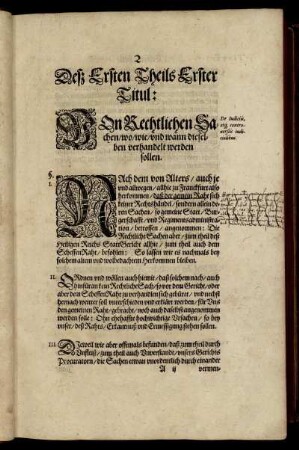 2
Deß Ersten Theils Erster
Titul:
VOn Rechtlichen Sa-
chen/wo/wie/vnd wann diesel-
ben verhandelt werden
sollen.
De iudiciis,
§.
I.
NAch dem von Alters/auch je
vnd allwegen/allhie zu Franckfurt also
herkommen/daß der gemein Raht sich
keiner Rechtshändel/sondern allein de-
ren Sachen/so gemeine Statt/Bur-
gerschafft/vnd Regimentsadministra-
tion/betreffen/angenommen: Die
Rechtliche Sachen aber/zum theil deß
Heiligen Reichs StattGericht allhie/zum theil auch dem
SchöffenRaht/befohlen: So lassen wir es nachmals bey
solchem altem vnd wolbedachtem Herkommen bleiben.
II. ORdnen vnd wöllen auch hiemit/daß solchem nach/auch
hinfüro kein Rechtliche Sach/so vor dem Gericht/oder
aber dem SchöffenRaht zu verhandlen sich gebürt/vnd auch
hernach weiter soll vnterschieden vnd erklärt werden/für den
gemeinen Raht/gebracht/noch auch daselbst angenommen
werden solle: Ohn ehehaffte hochwichtige Vrsachen/so bey
vnser/deß Rahts/Erkantnuß vnd Ermessigung stehen sollen.
III. DIeweil wir aber offtmals befunden/daß zum theil durch
Vnfleiß/zum theil auch Vnverstande/vnsers Gerichts
Procuratorn/die Sachen etwan vnordentlich durch einander
A ij vermen-